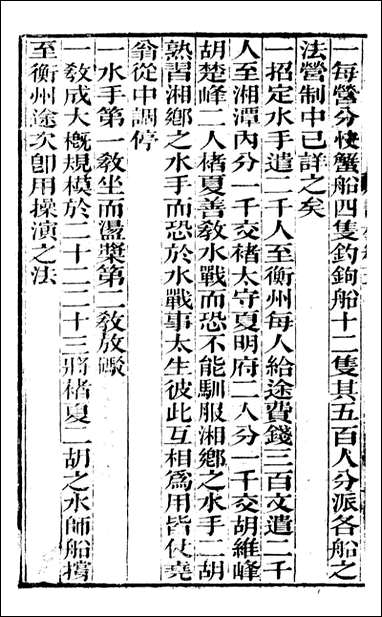 一每營分快蟹船四隻釣鉤船十二隻其五百人分派各船之
法營制中已詳之矣
一招定水手遣二千人至衡州每人給途費錢三百文遣二千
人至湘潭內分一千交褚太守夏明府二人分一千交胡維峰
胡楚峰二人楮夏善教水戰而恐不能馴服湘鄉之水手二胡
熟習湘鄉之水手而恐於水戰事太生彼此互相爲用皆仗堯
翁從中調停
一水手第一教坐而盪槳第二教放礮
一教成大概規模於二十二二十三將楮夏二胡之水師船撐
至衡州途次卽用操演之法